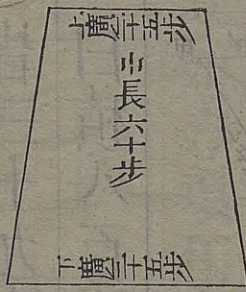 上廣二十五步
長六十步
下廣三十五步